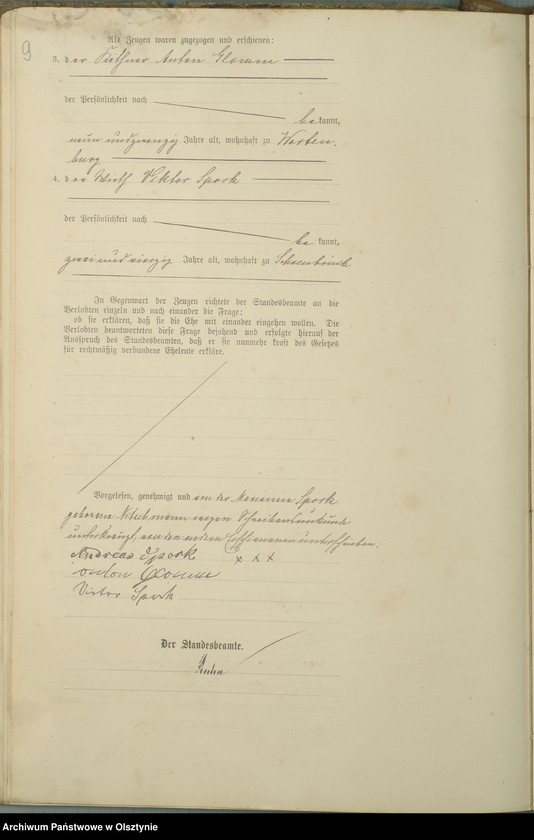 9
Als Zeugen waren zugezogen und erschienen:
3. der Käthner Anton
der Persönlichkeit nach
bekannt,
neun und zwanzig Jahre alt, wohnhaft zu Warten,
burg
4. der Wirth Viktor Spork
der Persönlichkeit nach
be kannt,
zwei und vierzig Jahre alt, wohnhaft zu Schoenbrück
In Gegenwart der Zeugen richtete der Standesbeamte an die
Verlobten einzeln und nach einander die Frage:
ob sie erklären, daß sie die Ehe mit einander eingehen wollen. Die
Verlobten beantworteten diese Frage bejahend und erfolgte hierauf der
Ausspruch des Standesbeamten, daß er sie nunmehr kraft des Gesetzes
für rechtmäßig verbundene Eheleute erkläre.
Vorgelesen, genehmigt und von der Spork
geborene wegen Schreibensunkunde
unterkreuzt, von den andern Erschienenen unterschrieben.
Andreas Spork x x x
Anton
Victor Spork
Der Standesbeamte.
Archiwum Państwowe w Olsztynie